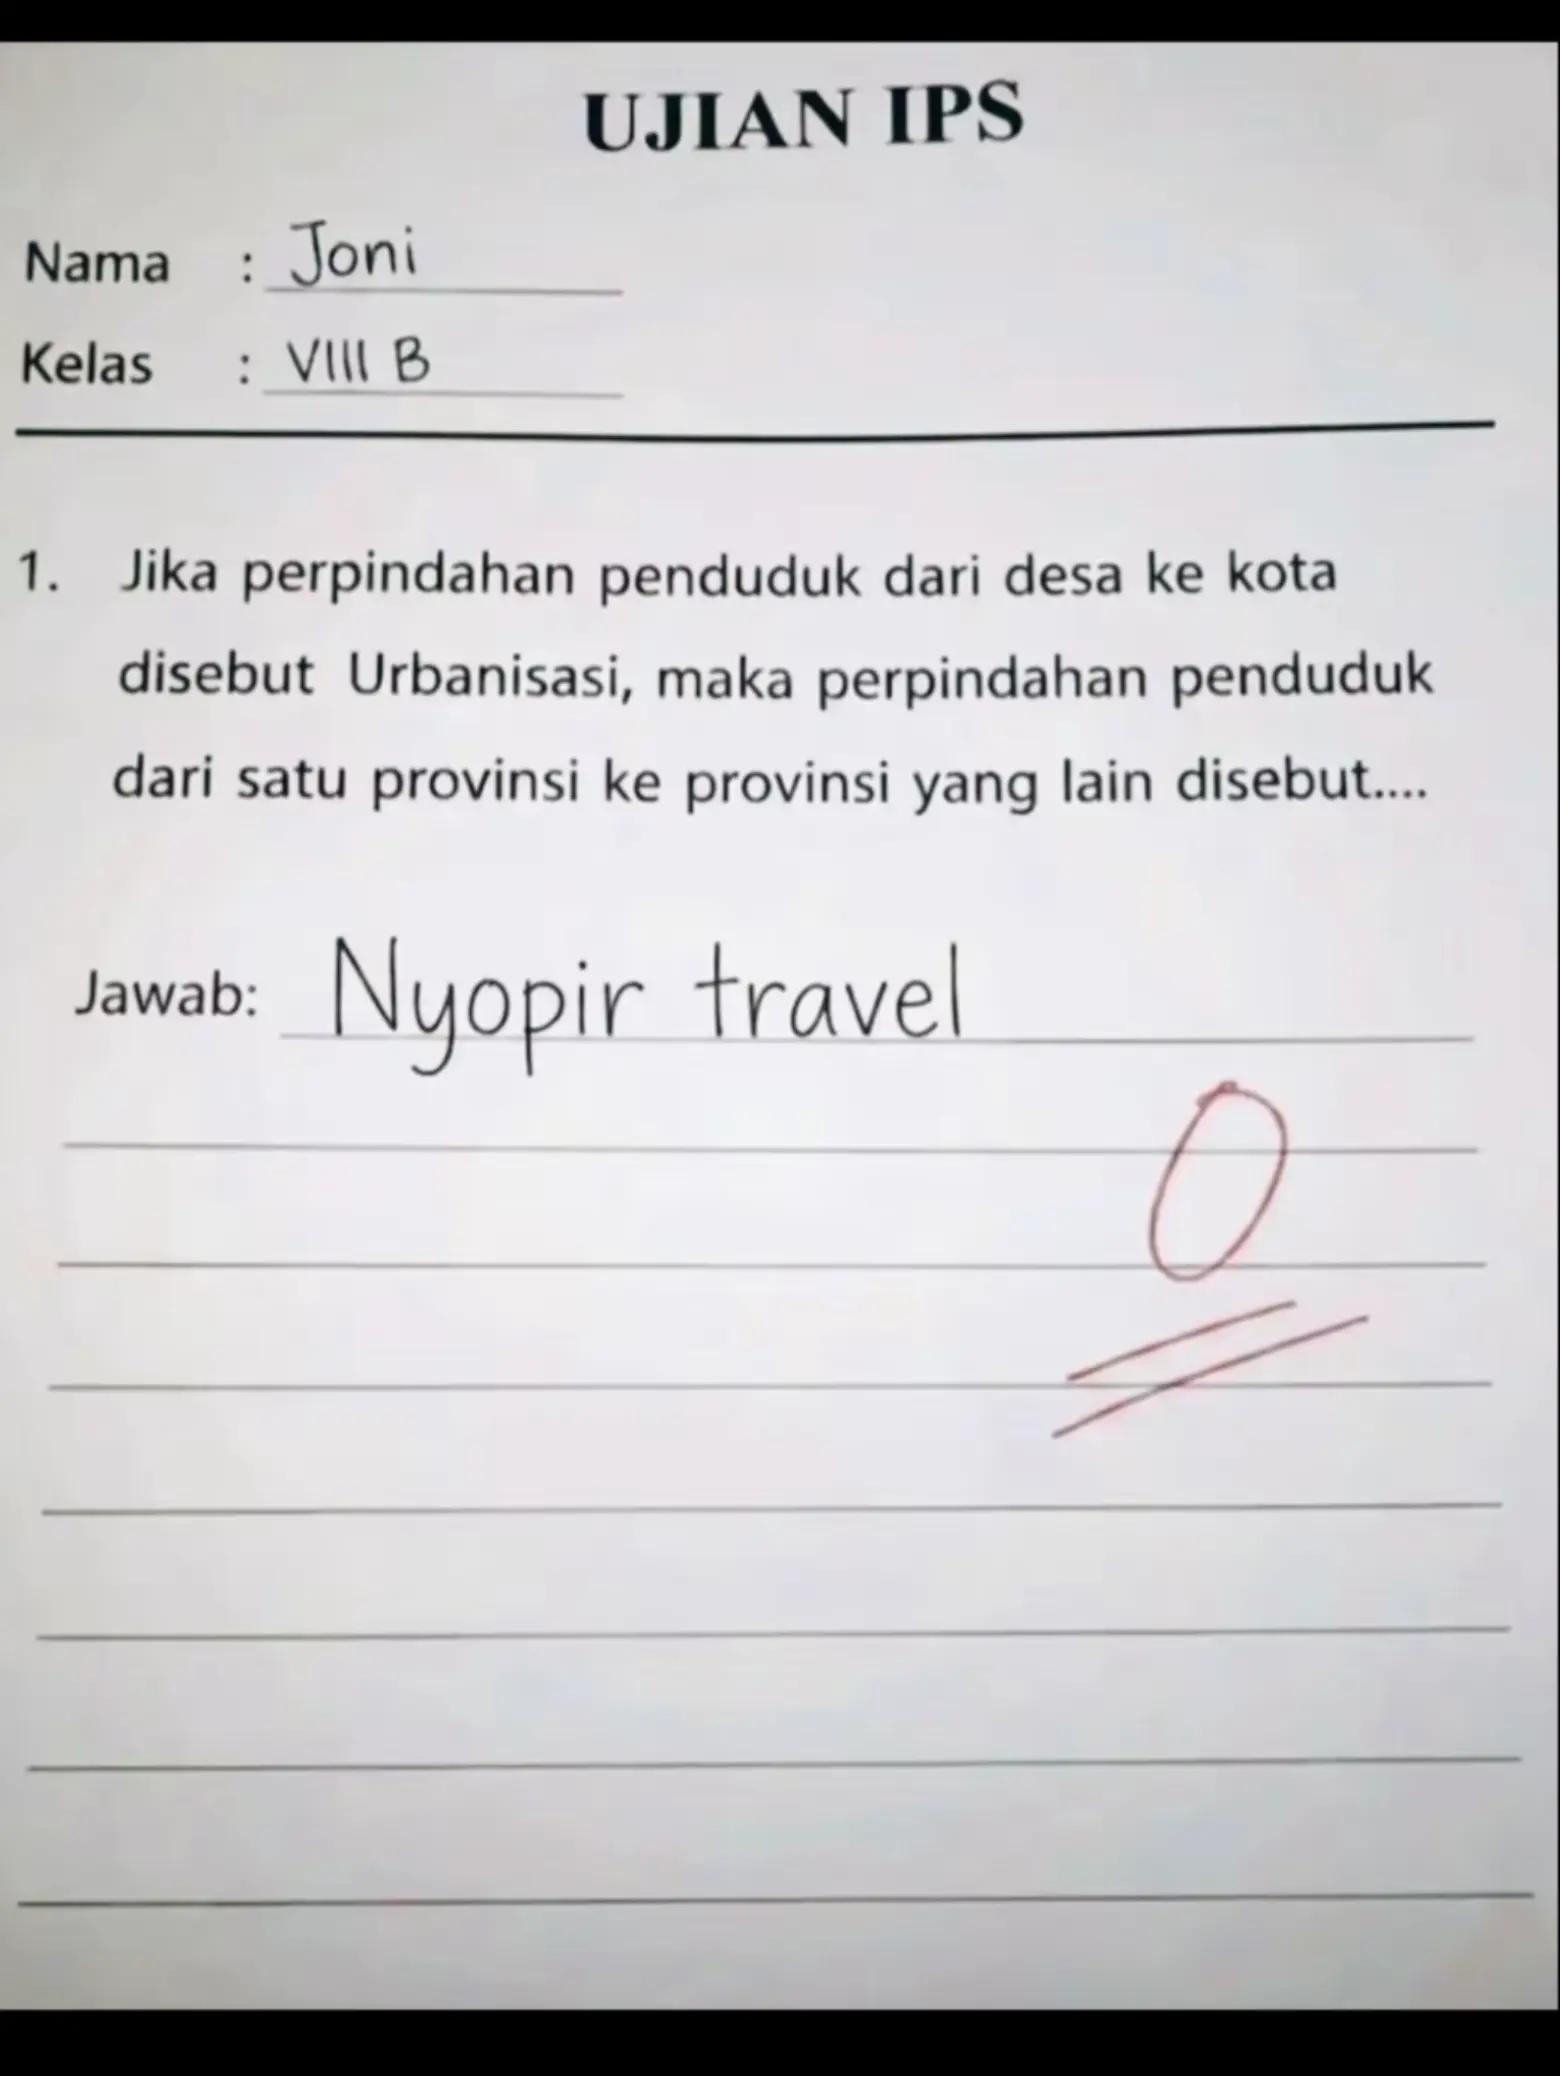 UJIAN IPS
Nama : Joni
Kelas : VIII B
1. Jika perpindahan penduduk dari desa ke kota
disebut Urbanisasi, maka perpindahan penduduk
dari satu provinsi ke provinsi yang lain disebut....
Jawab: Nyopir travel
0